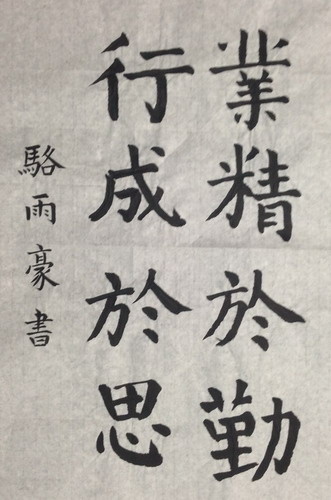 業精於勤
行成於思
駱雨豪書